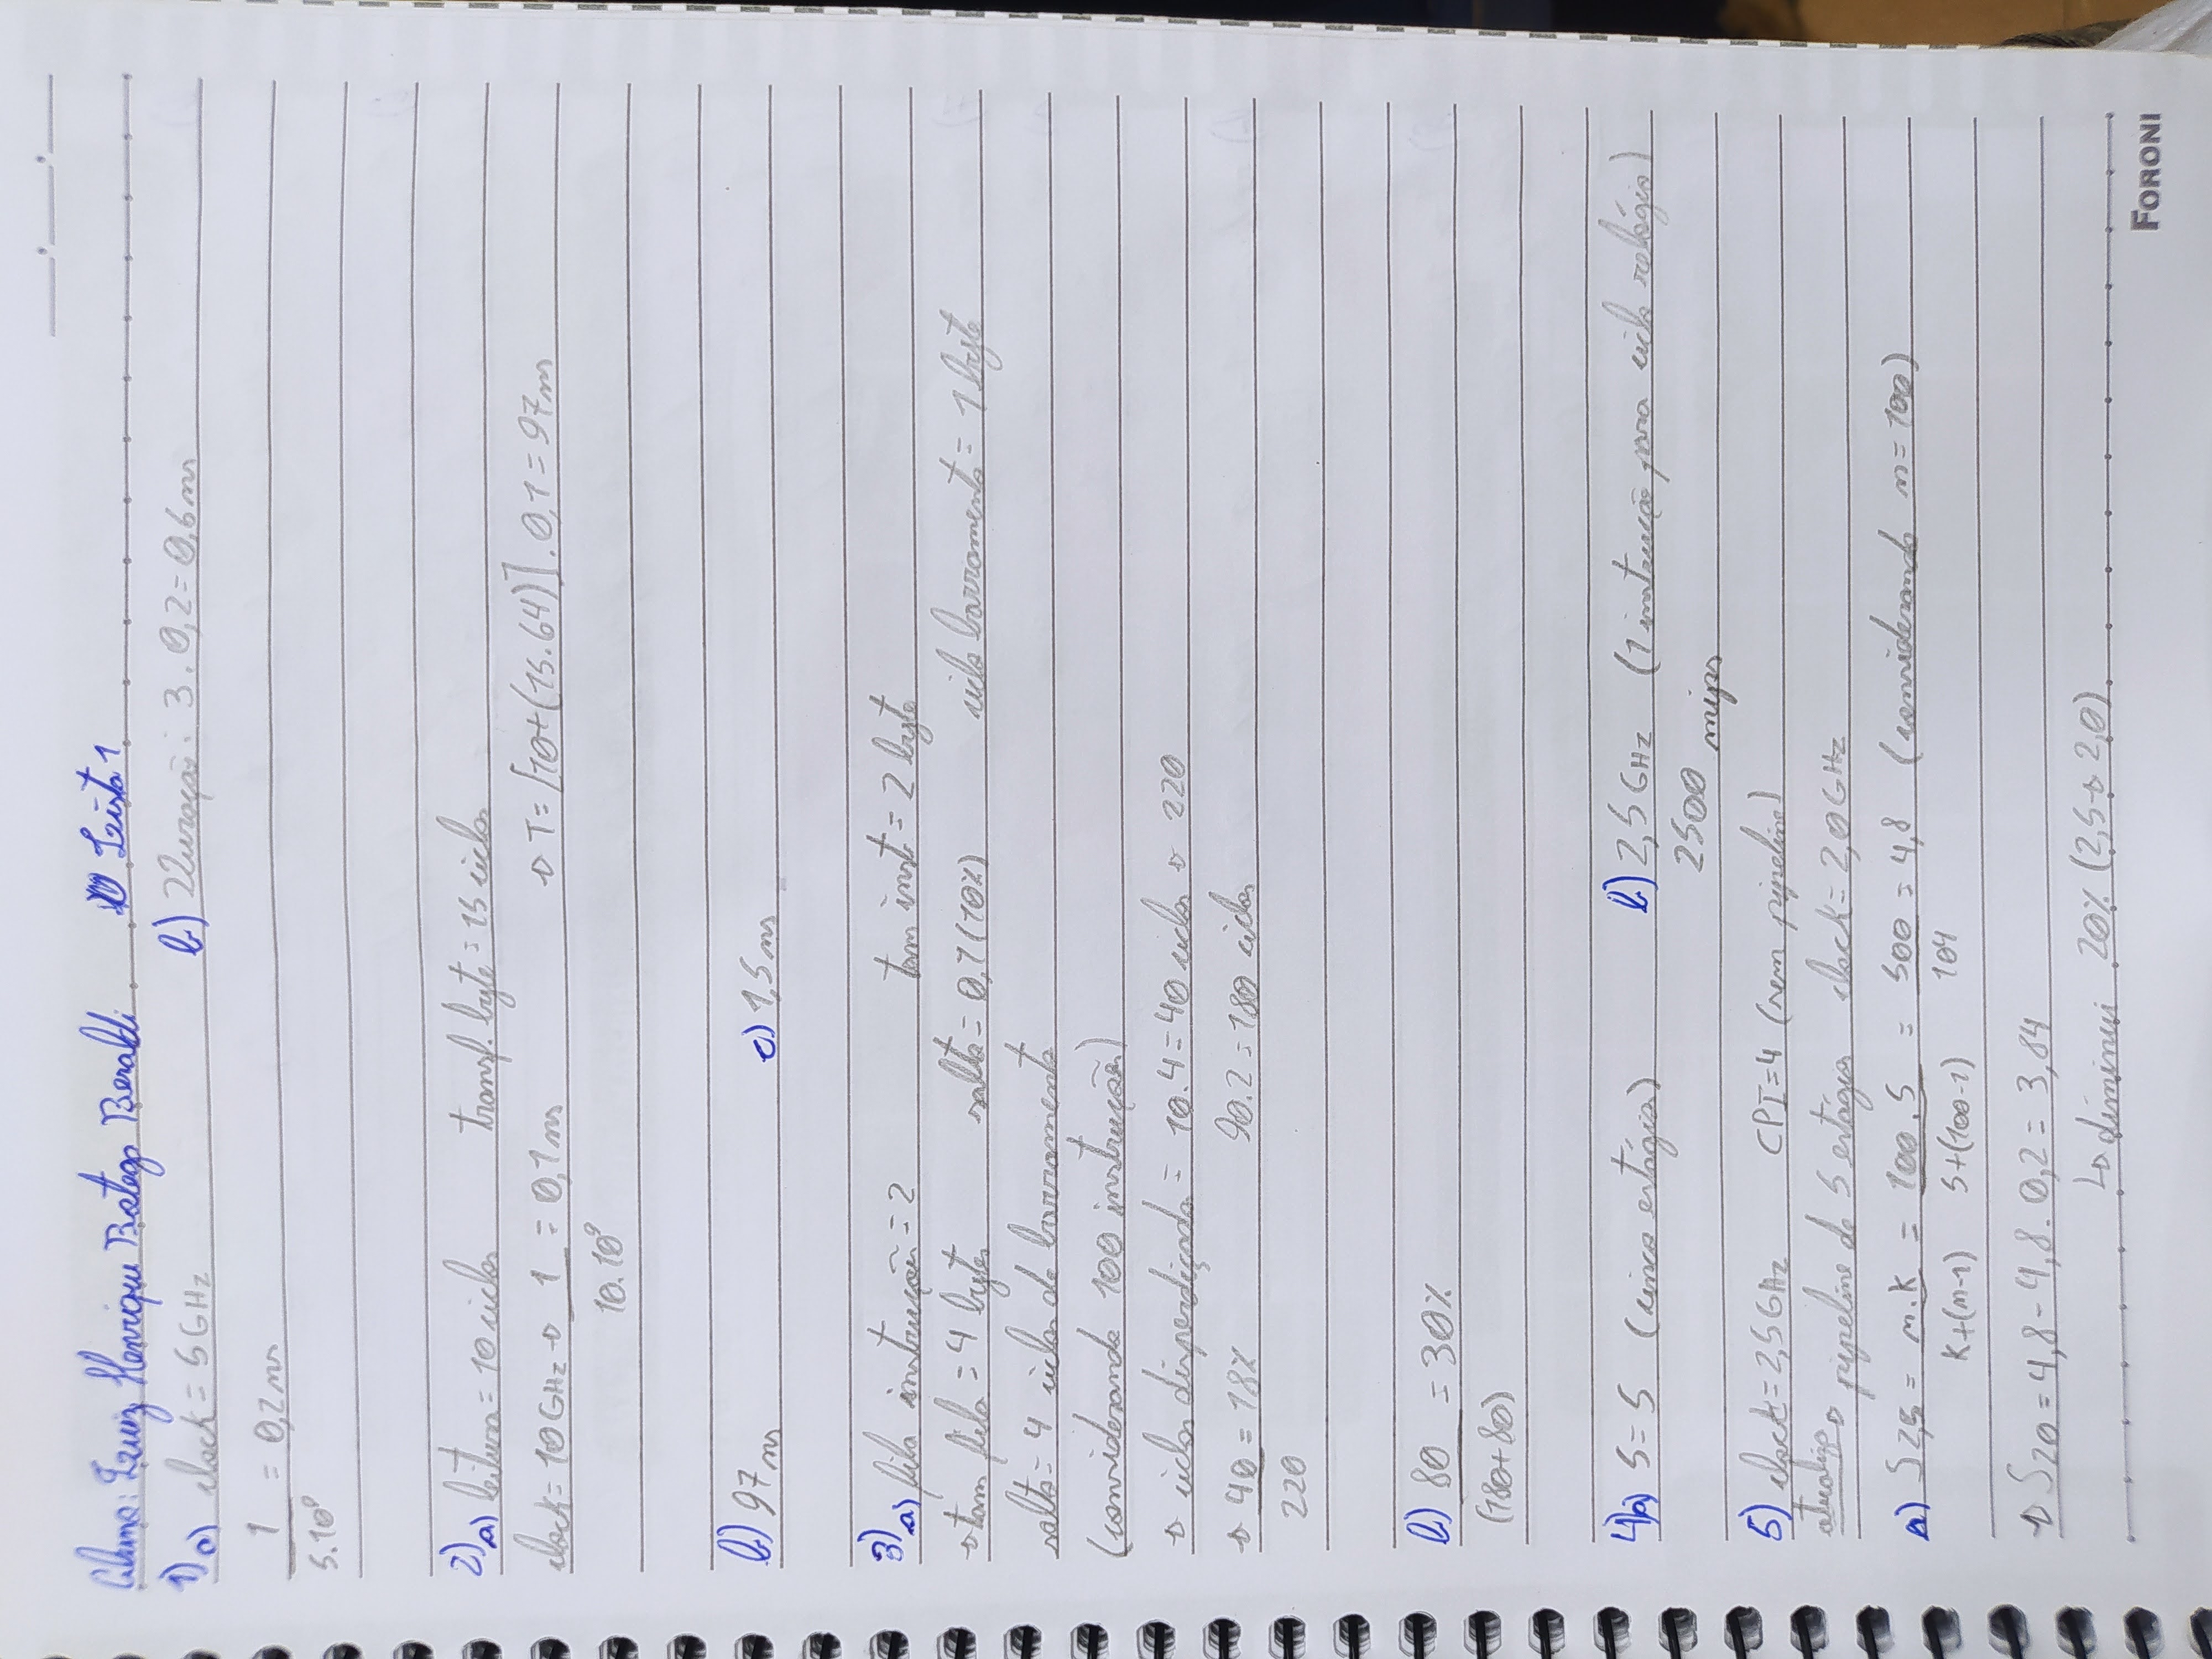 Aluno: Luiz Henrique Botega Beraldi Lista 1
1) a) clock = 5 GHz b) Duração: 3 . 0,2 = 0,6 ns
1 = 0,2 ns
5.10⁹
2) a) leitura = 10 ciclos transf. byte = 15 ciclos
clock = 10 GHz → 1 = 0,1 ns → T = [10 + (15.64)] . 0,1 = 97 ns
10.10⁹
b) 97 ns c) 1,5 ns
3) a) fila instrução = 2 tam inst = 2 byte
→ tam fila = 4 bytes salto = 0,1 (10%) ciclo barramento = 1 byte
salto = 4 ciclos de barramento
(considerando 100 instruções)
→ ciclos disperdiçados = 10.4 = 40 ciclos → 220
→ 40 = 18% 90.2 = 180 ciclos
220
b) 80 = 30%
(180+80)
4) a) S = 5 (cinco estágios) b) 2,5 GHz (1 instrução para ciclo relógio)
2500 mips
5) clock = 2,5 GHz CPI = 4 (sem pipeline)
atualizo → pipeline de 5 estágios clock = 2,0 GHz
a) S2,5 = n.K = 100.5 = 500 = 4,8 (considerando n = 100)
K+(n-1) 5+(100-1) 104
→ S20 = 4,8 - 4,8 . 0,2 = 3,84
↳ diminui 20% (2,5 → 2,0)
FORONI